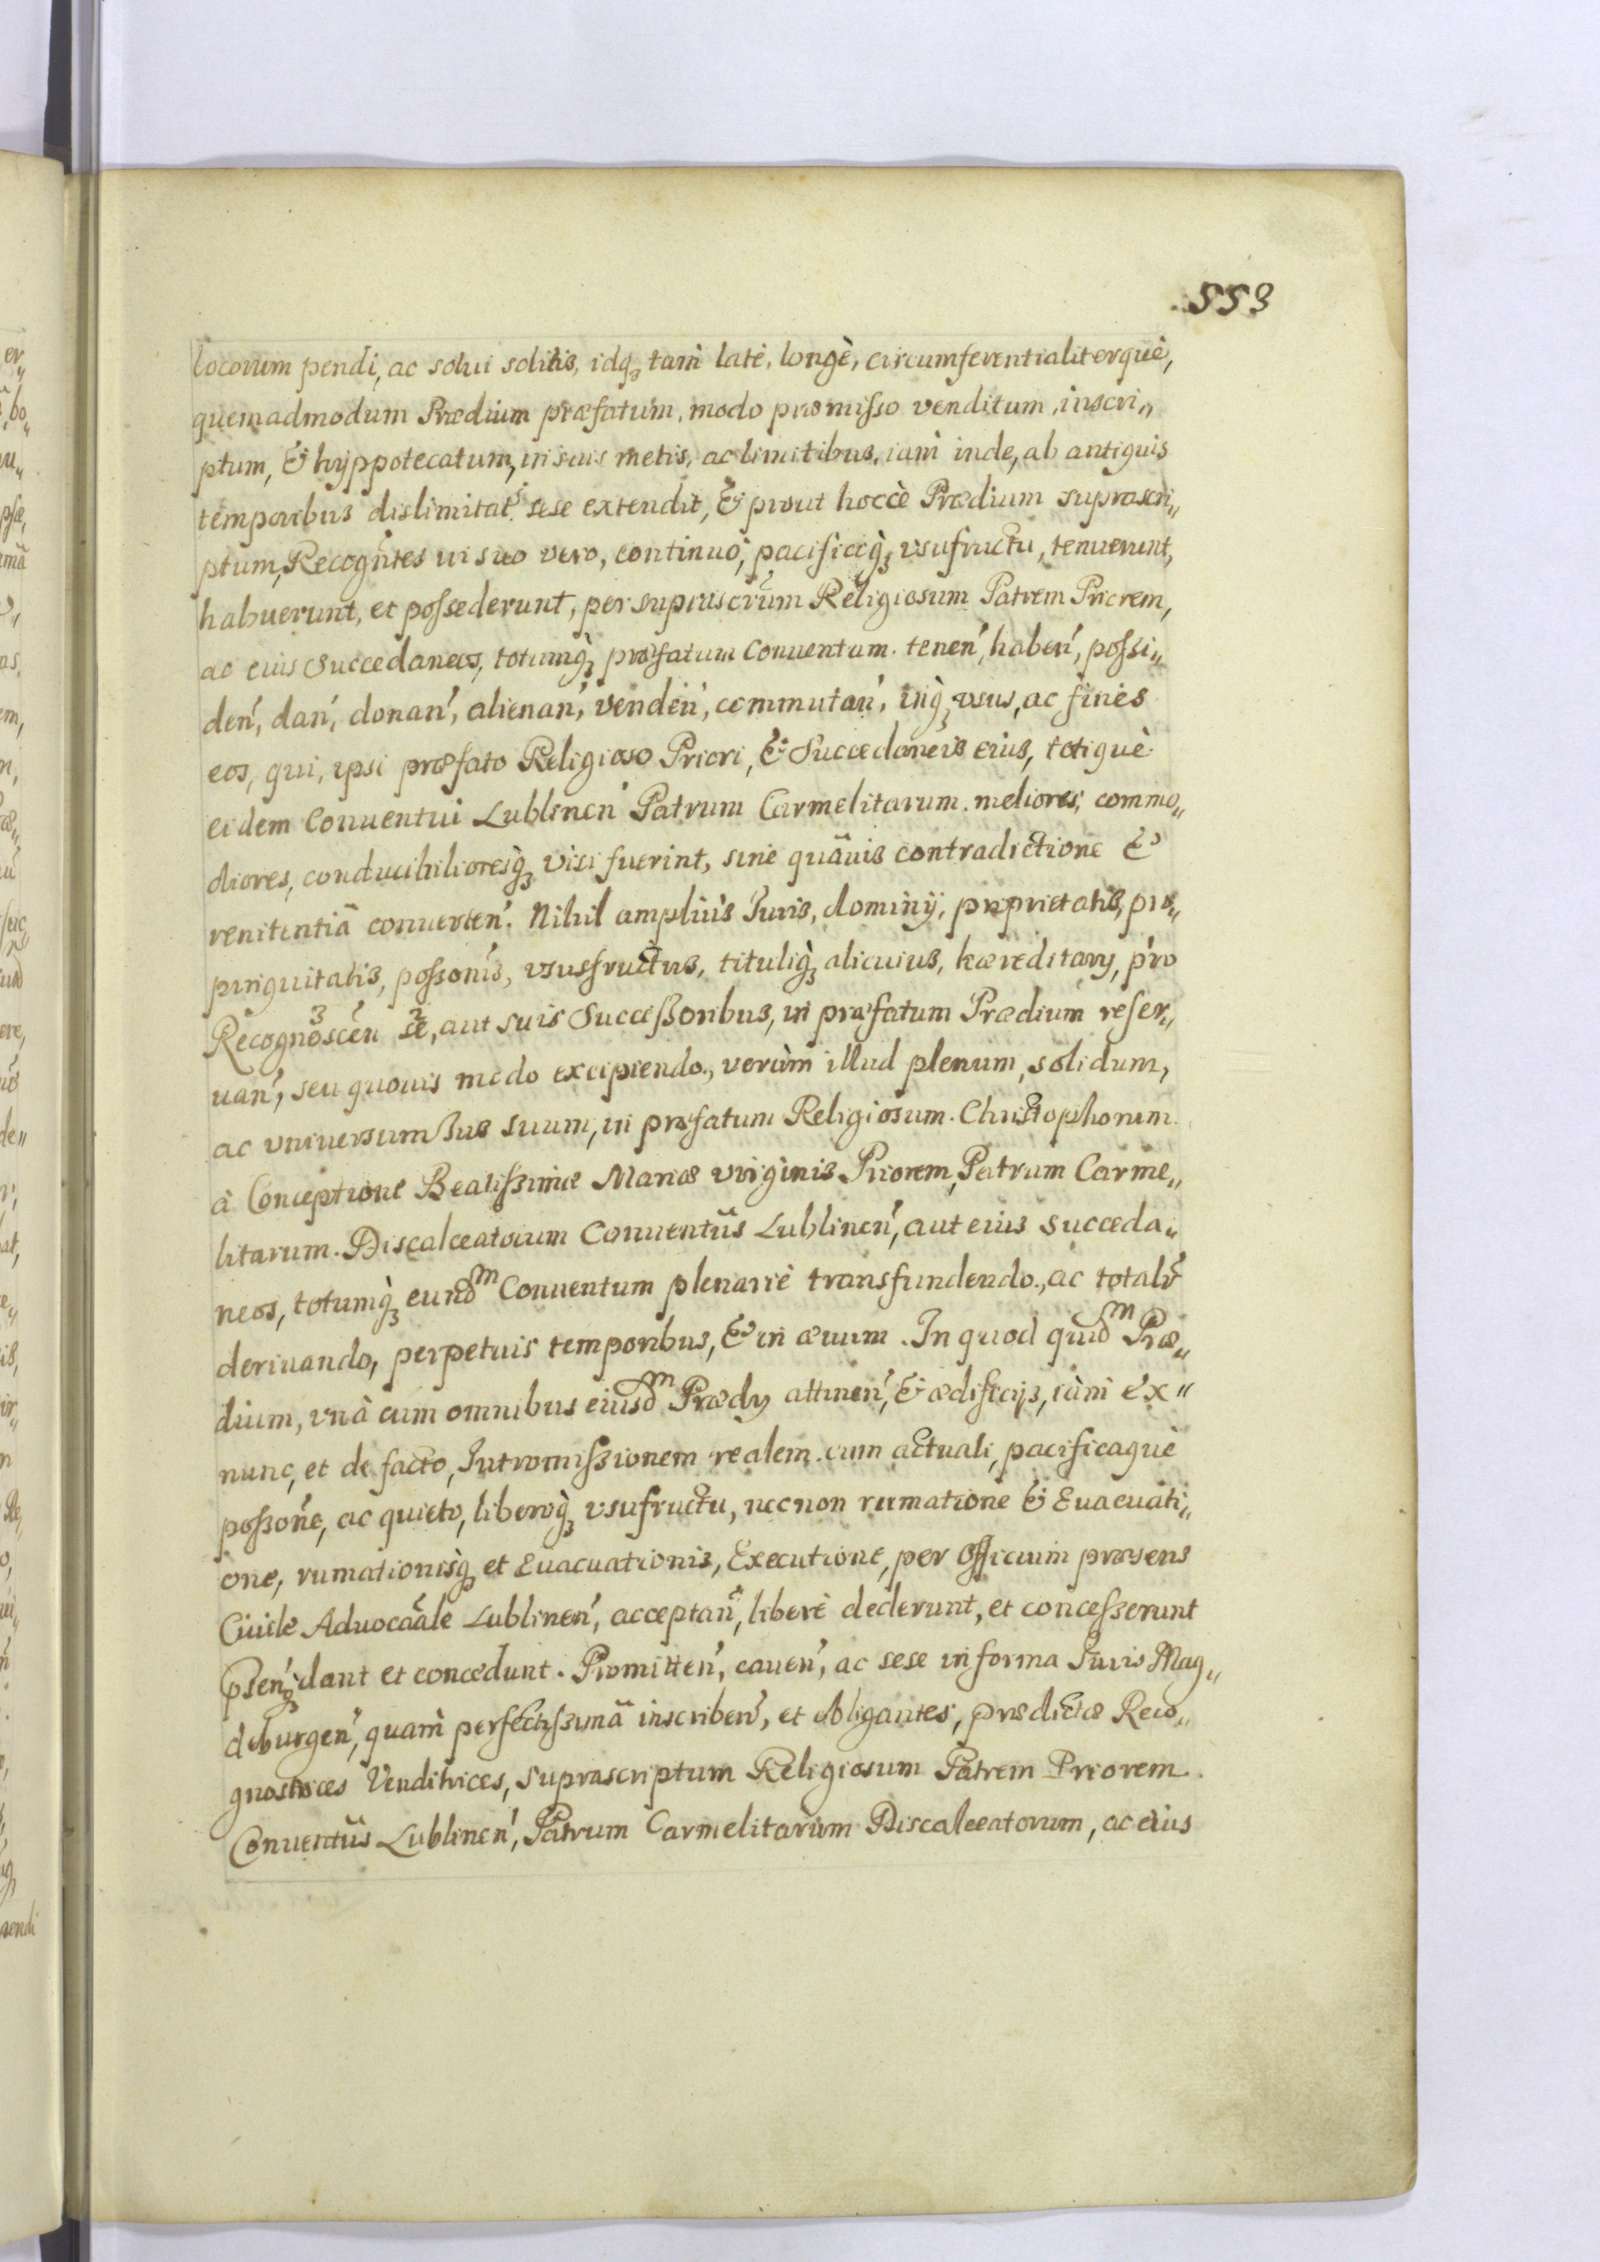 553
locorum pendi, ac solui solitis, idq; tam latè, longè, circumferentialiterquè,
quemadmodum Prædium præfatum, modo præmisso venditum, inscri„
ptum, & hyppotecatum, in suis metis, ac limitibus, iam inde, ab antiquis
temporibus dislimitat: sese extendit, & prout hoccè Prædium suprascri„
ptum, Recogntes in suo vero, continuò, pacificòq; vsufructu, tenuerunt,
habuerunt, et possederunt, per supruscrum Religiosum Patrem Priorem,
ac eius Succedaneos, totumq; præfatum Conuentum. tenen', haben', possi„
den', dan', donan', alienan', venden', commutan', inq; vsus, ac fines
eos, qui, ipsi præfato Religioso Priori, & Succedaneis eius, totiquè
eidem Conuentui Lublinen' Patrum Carmelitarum. meliores, commo„
diores, conducibilioresq; visi fuerint, sine quāuis contradictione &
renitentiā conuerten'. Nihil ampliùs Iuris, dominij, proprietatis, pro„
pinquitatis, possonis, vsusfructus, tituliq; alicuius, hæreditarij, pro
Recognoscen se, aut suis Successoribus, in præfatum Prædium reser„
uan', seu quouis modo excipiendo., verùm illud plenum, solidum,
ac vniuersum Ius suum, in præfatum Religiosum. Christophorum.
à Conceptione Beatissimæ Mariæ virginis Priorem, Patrum Carme„
litarum. Discalceatorum Conuentûs Lublinen', aut eius succeda„
neos, totumq; eundm Conuentum plenariè transfundendo., ac totalr
deriuando, perpetuis temporibus, & in æuum. In quod quidm Præ„
dium, vnà cum omnibus eiusdm Prædij attinen', & ædificijs, iàm ex„
nunc, et de facto, Intromissionem realem. cum actuali, pacificaquè
possone, ac quieto, liberoq; vsufructu, necnon rumatione & Euacuati„
one, rumationisq; et Euacuationis, Executione, per Officium præsens
Ciuile Aduocāale Lublinen', acceptan', liberè dederunt, et concesserunt
psenq; dant et concedunt. Promitten', cauen', ac sese in forma Iuris Mag„
deburgen', quam perfectissimā inscriben', et obligantes, prædictæ Reco„
gnostrices Venditrices, suprascriptum Religiosum Patrem Priorem.
Conuentûs Lublinen', Patrum Carmelitarum Discalceatorum, ac eius